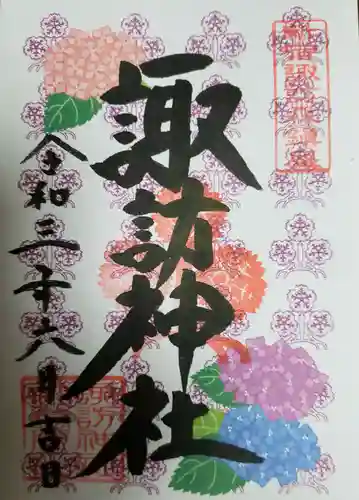 諏訪神社
令和三年六月吉日